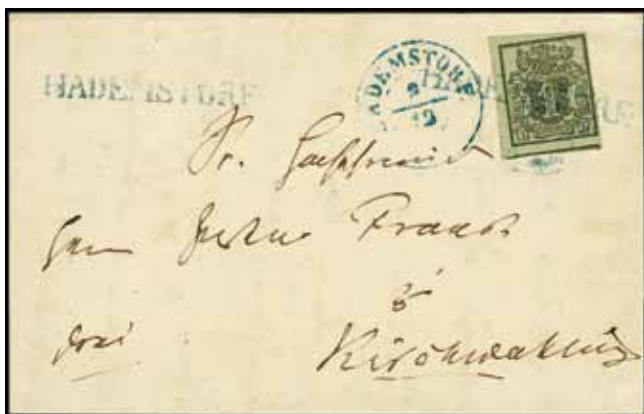 HADEMSTORF
HADEMSTORF
9
12
HADEMSTORF
Sr. Hochehrwürd
Herrn Pastor Franck
zu
frei
Kirchwahlingen